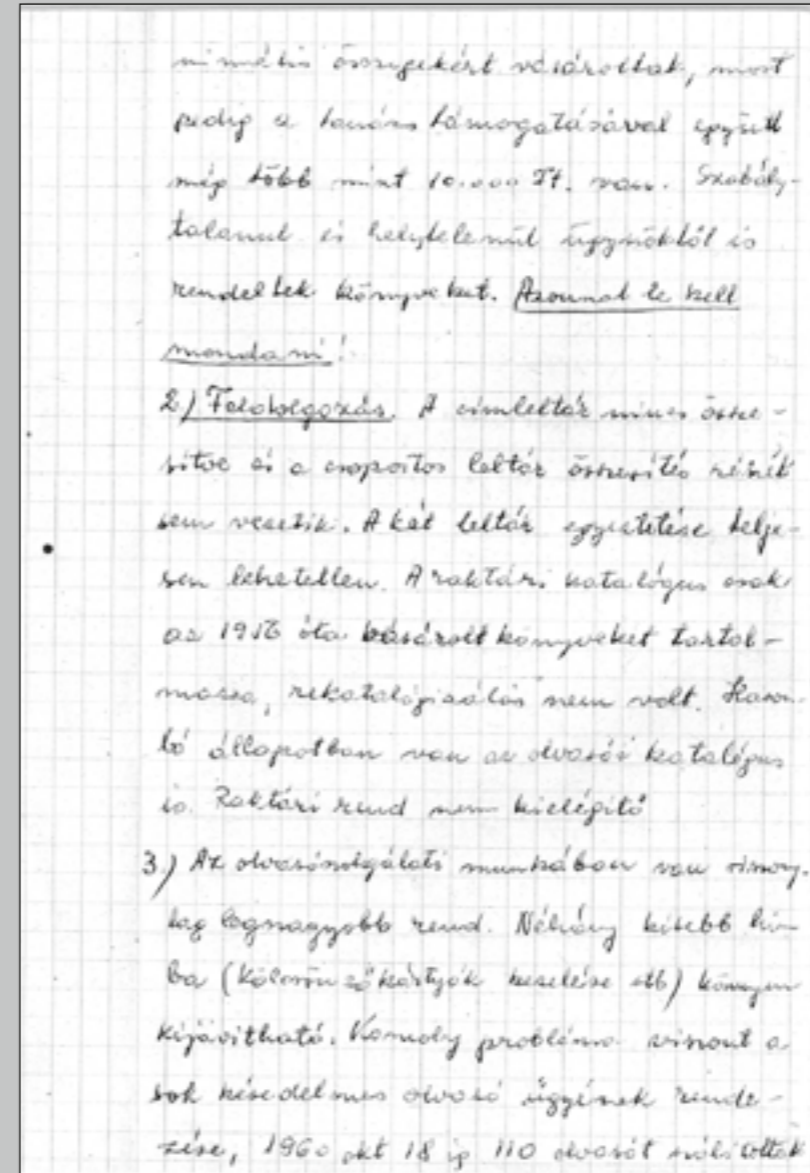 nimális összegekért vásároltak, most
pedig a tanács támogatásával együtt
még több mint 10.000 Ft. van. Szabály-
talanul és helytelenül ügynöktől is
rendeltek könyveket. Azonnal le kell
mondani!
2) Feldolgozás. A címleltár nincs össze-
sítve és a csoportos leltár összesítés részét
sem vezetik. A két leltár egyeztetése telje-
sen lehetetlen. A raktári katalógus csak
az 1956 óta vásárolt könyveket tartal-
mazza, rekatalogizálás nem volt. Hason-
ló állapotban van az olvasói katalógus
is. Raktári rend nem kielégítő
3.) Az olvasószolgálati munkában van viszony-
lag legnagyobb rend. Néhány kisebb hi-
ba (Kölcsönzőkártyák kezelése stb) könnyen
kijavítható. Komoly probléma viszont a
sok késedelmes olvasó ügyének rende-
zése, 1960 okt 18 ig 110 olvasót szólítottak